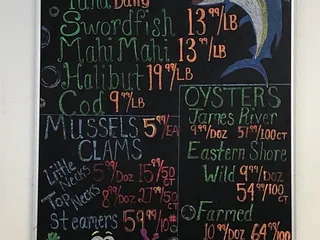 Tuna Dang
Swordfish 13.99/LB
Mahi Mahi 13.99/LB
Halibut 19.99/LB
Cod 9.99/LB
MUSSELS 5.99/EA
CLAMS
Little Necks 5.99/DOZ 15.99/50 CT
Top Necks 8.99/DOZ 27.99/50 CT
Steamers 59.99/10#
OYSTERS
James River
9.99/DOZ 51.99/100CT
Eastern Shore
Wild 9.99/DOZ
54.99/100CT
Farmed
10.99/DOZ 64.99/100 CT